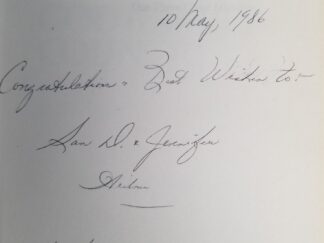 10 May, 1986
Congratulation & Best Wishes to:-
D. & Jennifer